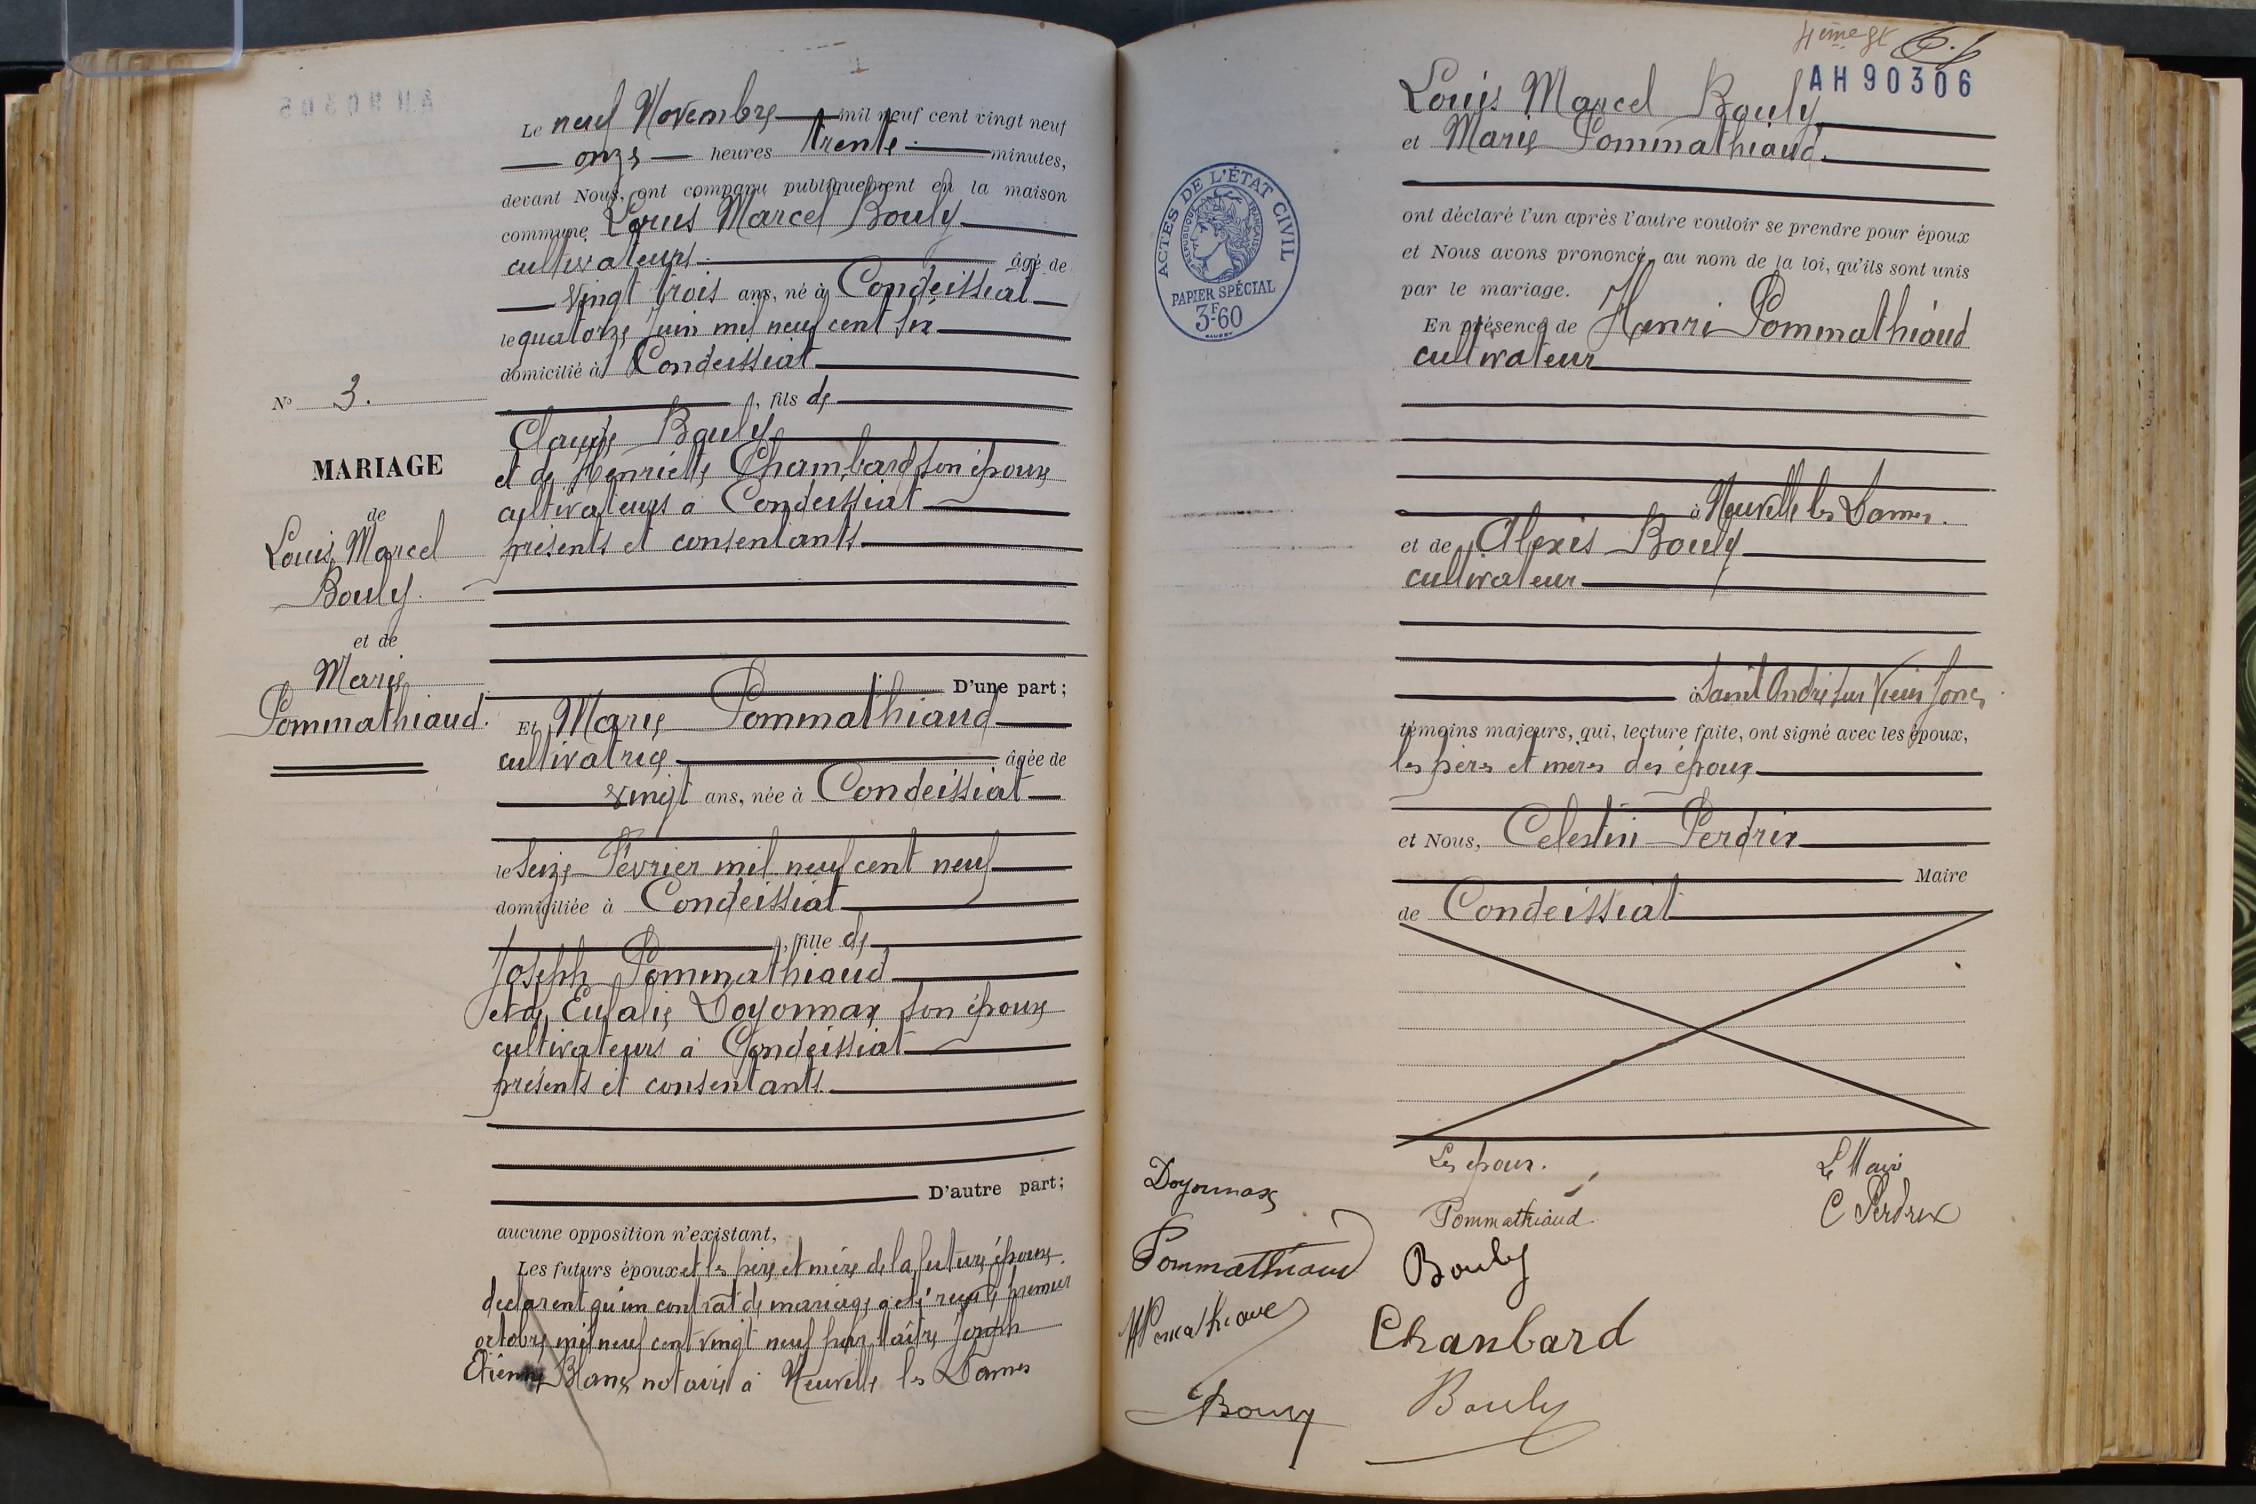 Le neuf Novembre mil neuf cent vingt neuf
onze heures trente minutes,
devant Nous, ont comparu publiquement en la maison
commune Louis Marcel Bouly
cultivateurs âgé de
vingt trois ans, né à Condeissiat
le quatorze Juin mil neuf cent six
domicilié à Condeissiat
, fils de
Claude Bouly
et de Henriette Chambard son épouse
cultivateurs à Condeissiat
présents et consentants
D'une part;
Et Marie Pommathiaud
cultivatrice âgée de
vingt ans, née à Condeissiat
le Seize Février mil neuf cent neuf
domiciliée à Condeissiat
, fille de
Joseph Pommathiaud
et de Eulalie Doyonnax son épouse
cultivateurs à Condeissiat
présents et consentants
D'autre part;
aucune opposition n'existant,
Les futurs époux et les père et mère de la future épouse
declarent qu'un contrat de mariage a été reçu le premier
octobre mil neuf cent vingt neuf par Maître Joseph
Etienne Blanc notaire à Neuville les Dames
No 3.
MARIAGE
de
Louis Marcel
Bouly.
et de
Marie
Pommathiaud.
4ème
AH90306
Louis Marcel Bouly
et Marie Pommathiaud.
ont déclaré l'un après l'autre vouloir se prendre pour époux
et Nous avons prononcé, au nom de la loi, qu'ils sont unis
par le mariage.
En présence de Henri Pommathiaud
cultivateur
à Neuville les Dames.
et de Alexis Bouly
cultivateur
à Saint André sur Vieux Jonc
témoins majeurs, qui, lecture faite, ont signé avec les époux,
les pères et mères des époux
et Nous, Celestin Perdrix
Maire
de Condeissiat
ACTES DE L'ÉTAT CIVIL
RÉPUBLIQUE FRANÇAISE
PAPIER SPÉCIAL
3F60
Les époux.
Le Maire
Doyonnax
Pommathiaud
C Perdrix
Pommathiaud
Bouly
Chanbard
Bouly
Bouly